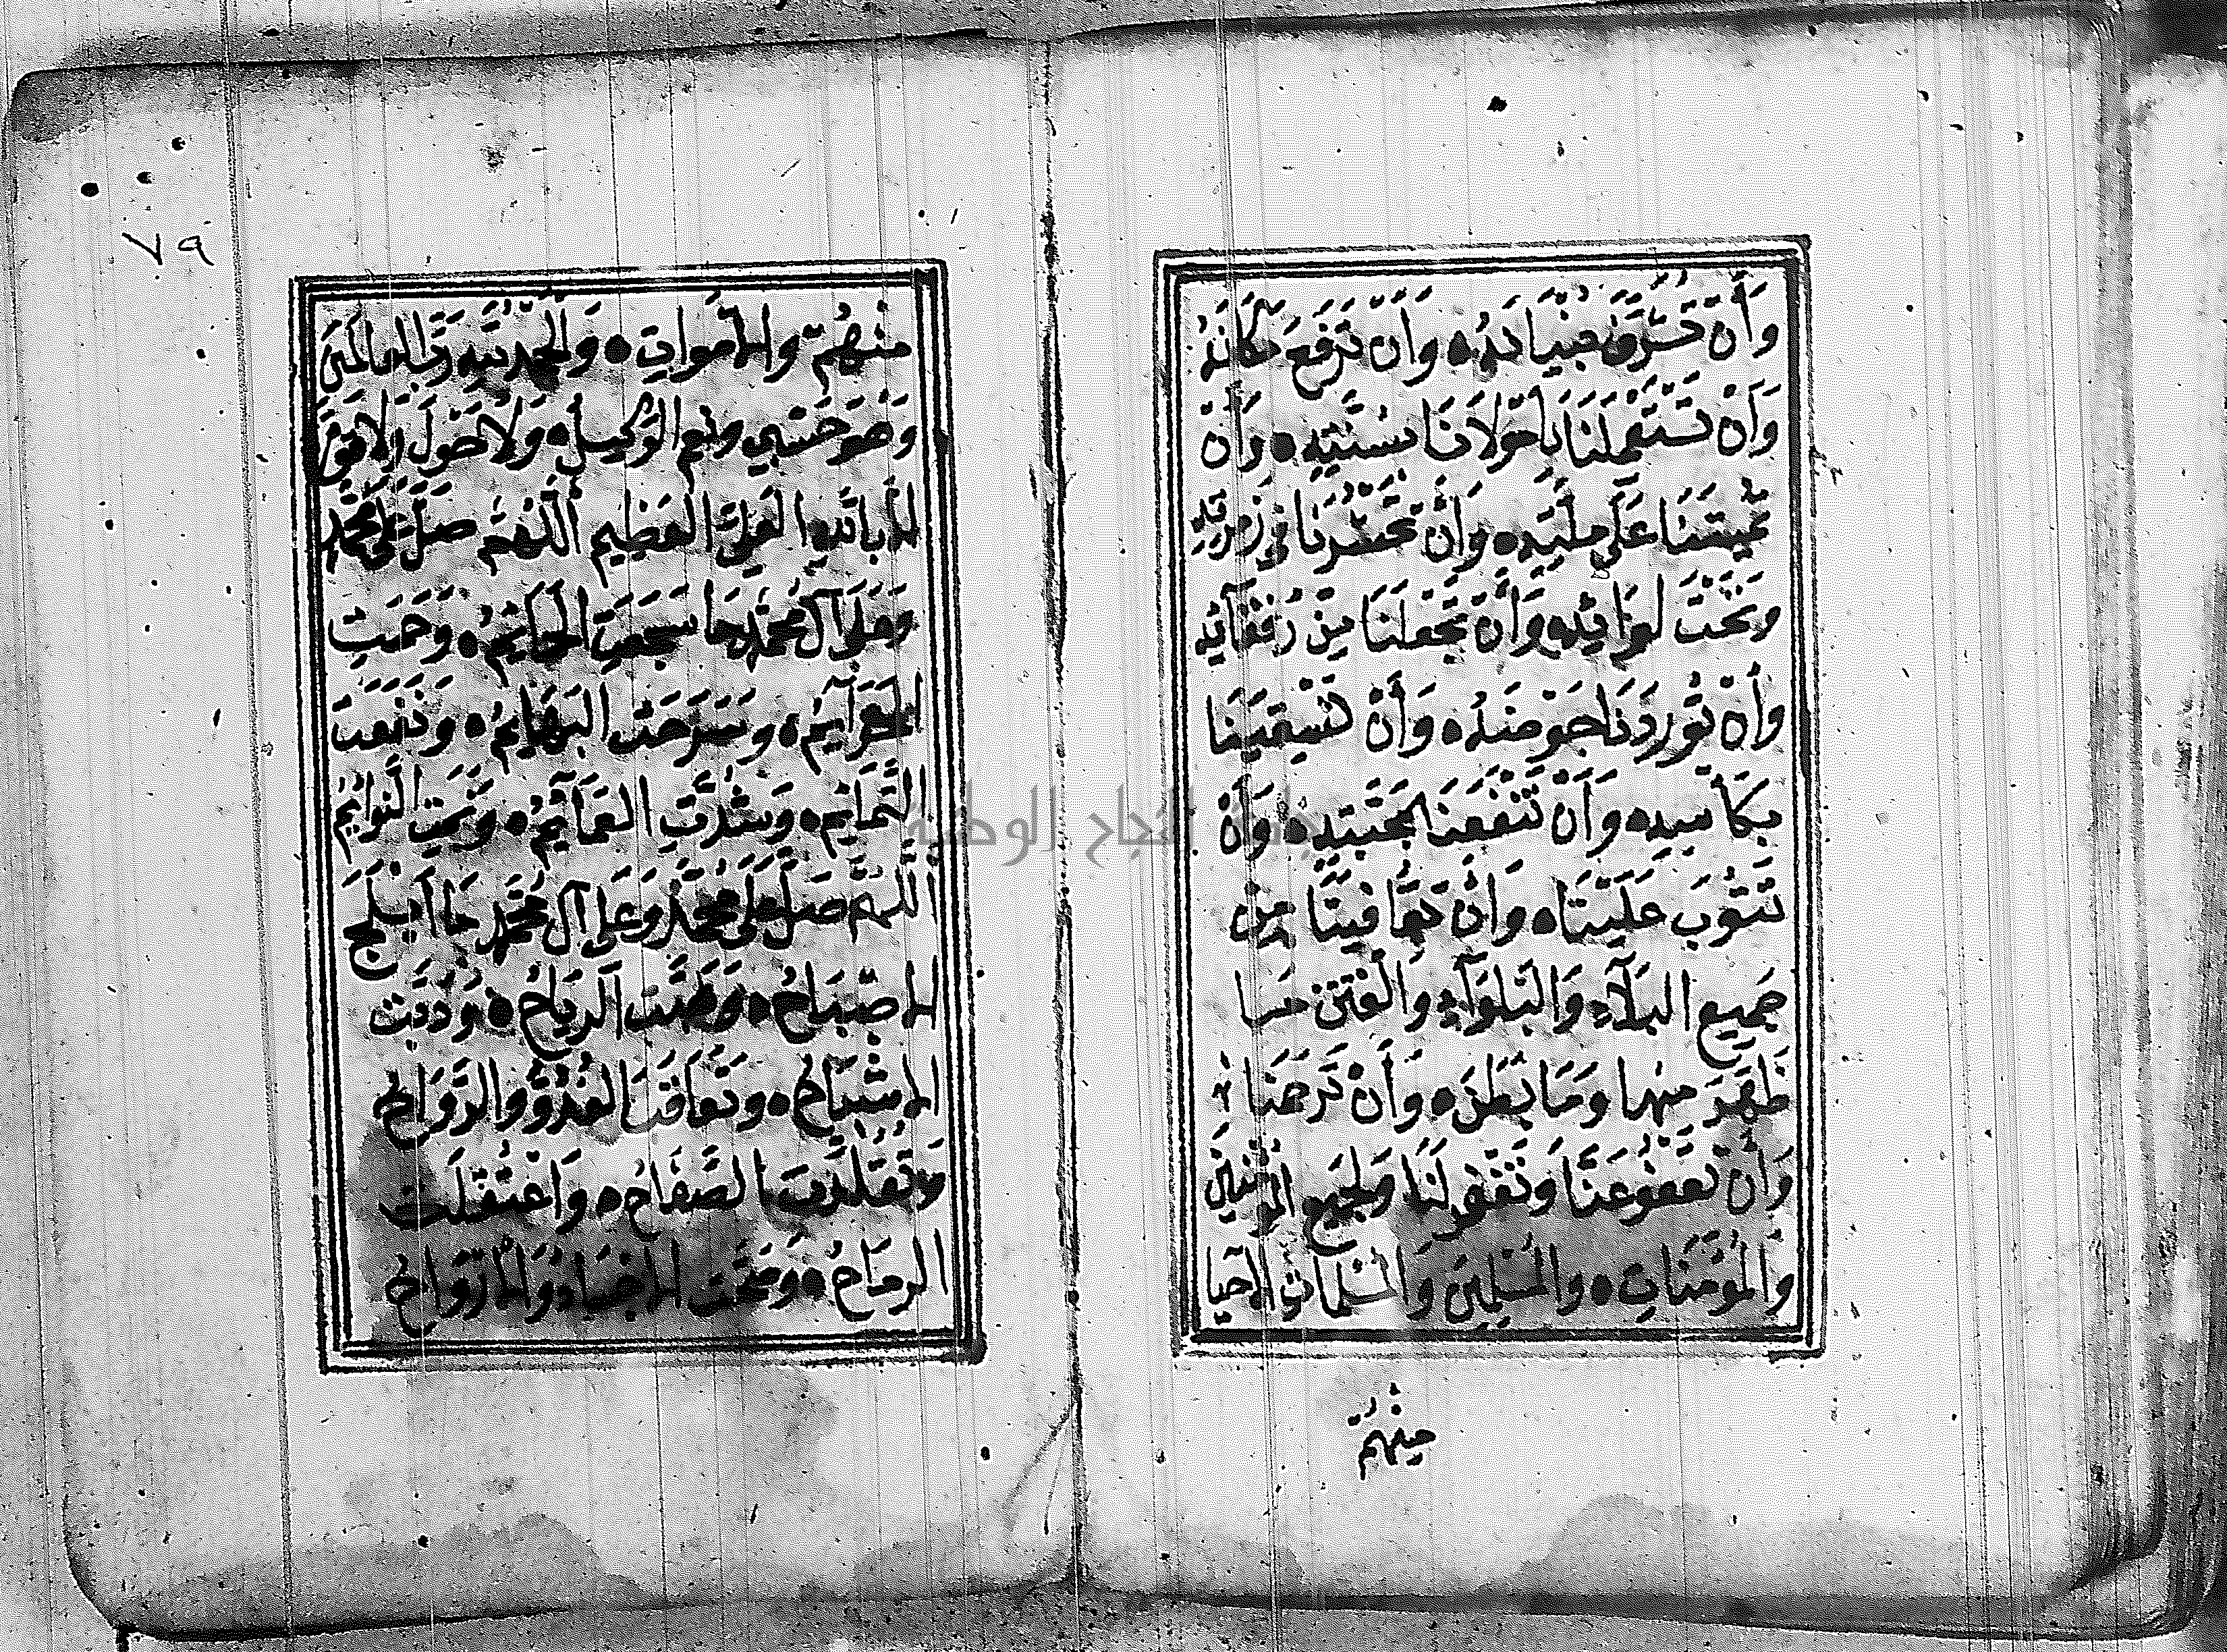 وَأَنْ تُشَرِّفَ بُنْيَانَهُ ۝ وَأَنْ تَرْفَعَ مَكَانَهُ
وَأَنْ تَسْتَعْمِلَنَا يَا مَوْلَانَا بِسُنَّتِهِ ۝ وَأَنْ
تُمِيتَنَا عَلَى مِلَّتِهِ ۝ وَأَنْ تَحْشُرَنَا فِي زُمْرَتِهِ
وَتَحْتَ لِوَائِهِ ۝ وَأَنْ تَجْعَلَنَا مِنْ رُفَقَائِهِ
وَأَنْ تُورِدَنَا حَوْضَهُ ۝ وَأَنْ تَسْقِيَنَا
بِكَأْسِهِ ۝ وَأَنْ تَنْفَعَنَا بِمَحَبَّتِهِ ۝ وَأَنْ
تَتُوبَ عَلَيْنَا ۝ وَأَنْ تُعَافِيَنَا مِنْ
جَمِيعِ الْبَلَآءِ وَالْبَلْوَآءِ وَالْفِتَنِ مَا
ظَهَرَ مِنْهَا وَمَا بَطَنَ ۝ وَأَنْ تَرْحَمَنَا
وَأَنْ تَعْفُوَ عَنَّا وَتَغْفِرَ لَنَا وَلِجَمِيعِ الْمُؤْمِنِينَ
وَالْمُؤْمِنَاتِ ۝ وَالْمُسْلِمِينَ وَالْمُسْلِمَاتِ الْأَحْيَاءِ
مِنْهُمْ
٧٩
مِنْهُمْ وَالْأَمْوَاتِ ۝ وَالْحَمْدُ لِلّٰهِ رَبِّ الْعَالَمِينَ
وَهُوَ حَسْبِي وَنِعْمَ الْوَكِيلُ ۝ وَلَا حَوْلَ وَلَا قُوَّةَ
إِلَّا بِاللّٰهِ الْعَلِيِّ الْعَظِيمِ اَللّٰهُمَّ صَلِّ عَلَى مُحَمَّدٍ
وَعَلَى آلِ مُحَمَّدٍ مَا سَجَعَتِ الْحَمَائِمُ ۝ وَحَمَتِ
الْحَوَائِمُ ۝ وَسَرَحَتِ الْبَهَائِمُ ۝ وَنَفَعَتِ
التَّمَائِمُ ۝ وَشُدَّتِ الْعَمَائِمُ ۝ وَنَمَتِ النَّوَائِمُ
اَللّٰهُمَّ صَلِّ عَلَى مُحَمَّدٍ وَعَلَى آلِ مُحَمَّدٍ مَا أَبْلَجَ
الْإِصْبَاحُ ۝ وَهَبَّتِ الرِّيَاحُ ۝ وَدَبَّتِ
الْأَشْبَاحُ ۝ وَتَعَاقَبَ الْغُدُوُّ وَالرَّوَاحُ
وَتُقُلِّدَتِ الصِّفَاحُ ۝ وَاعْتُقِلَتِ
الرِّمَاحُ ۝ وَصَحَّتِ الْأَجْسَادُ وَالْأَرْوَاحُ
جامعة النجاح الوطنية